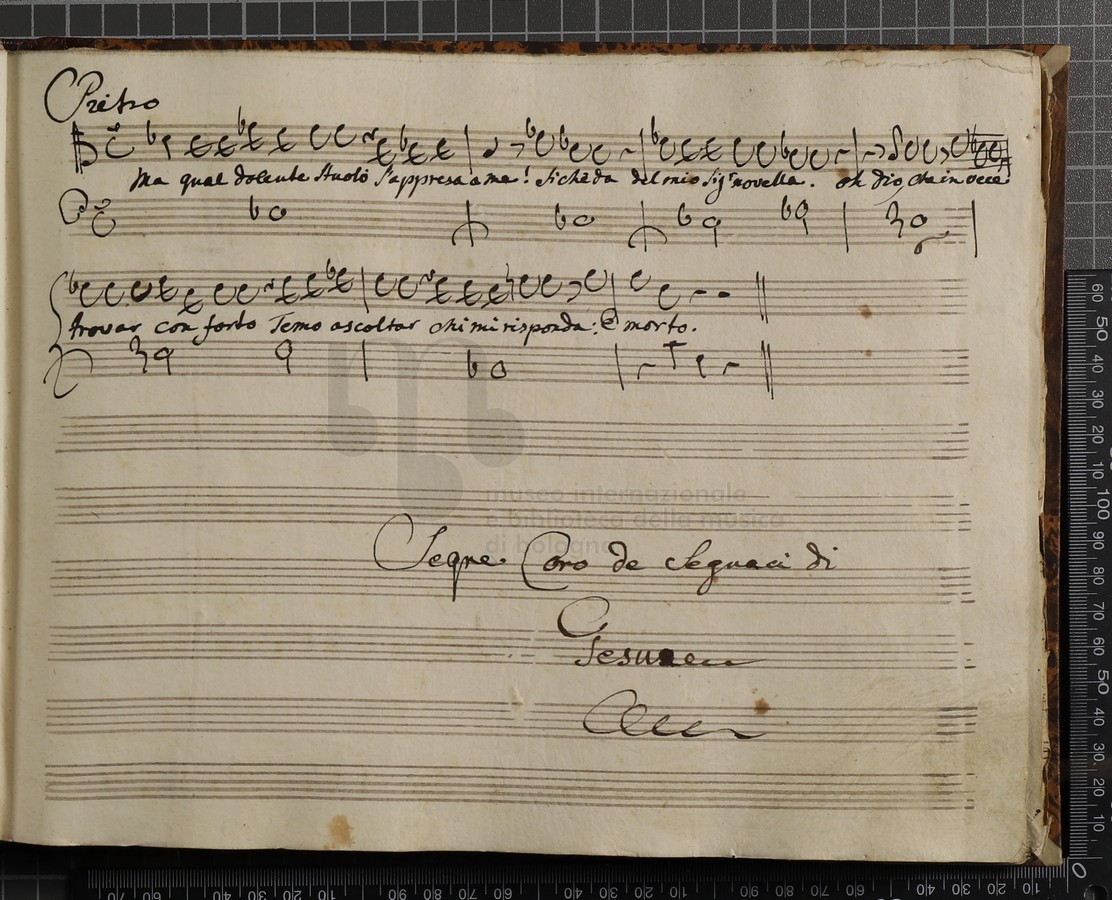 Pietro
Ma qual dolente stuolo s'appressa a me! si chieda del mio Sigr novella. oh Dio, che in vece
trovar conforto Temo ascoltar chi mi risponda: È morto.
museo internazionale
e biblioteca della musica
di bologna
Segue Coro de Seguaci di
Gesu
60 50 40 30 20 10 100 90 80 70 60 50 40 30 20 10 0